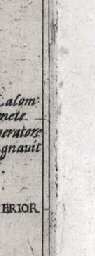 alom
mete
peratore
gnauit
ERIOR